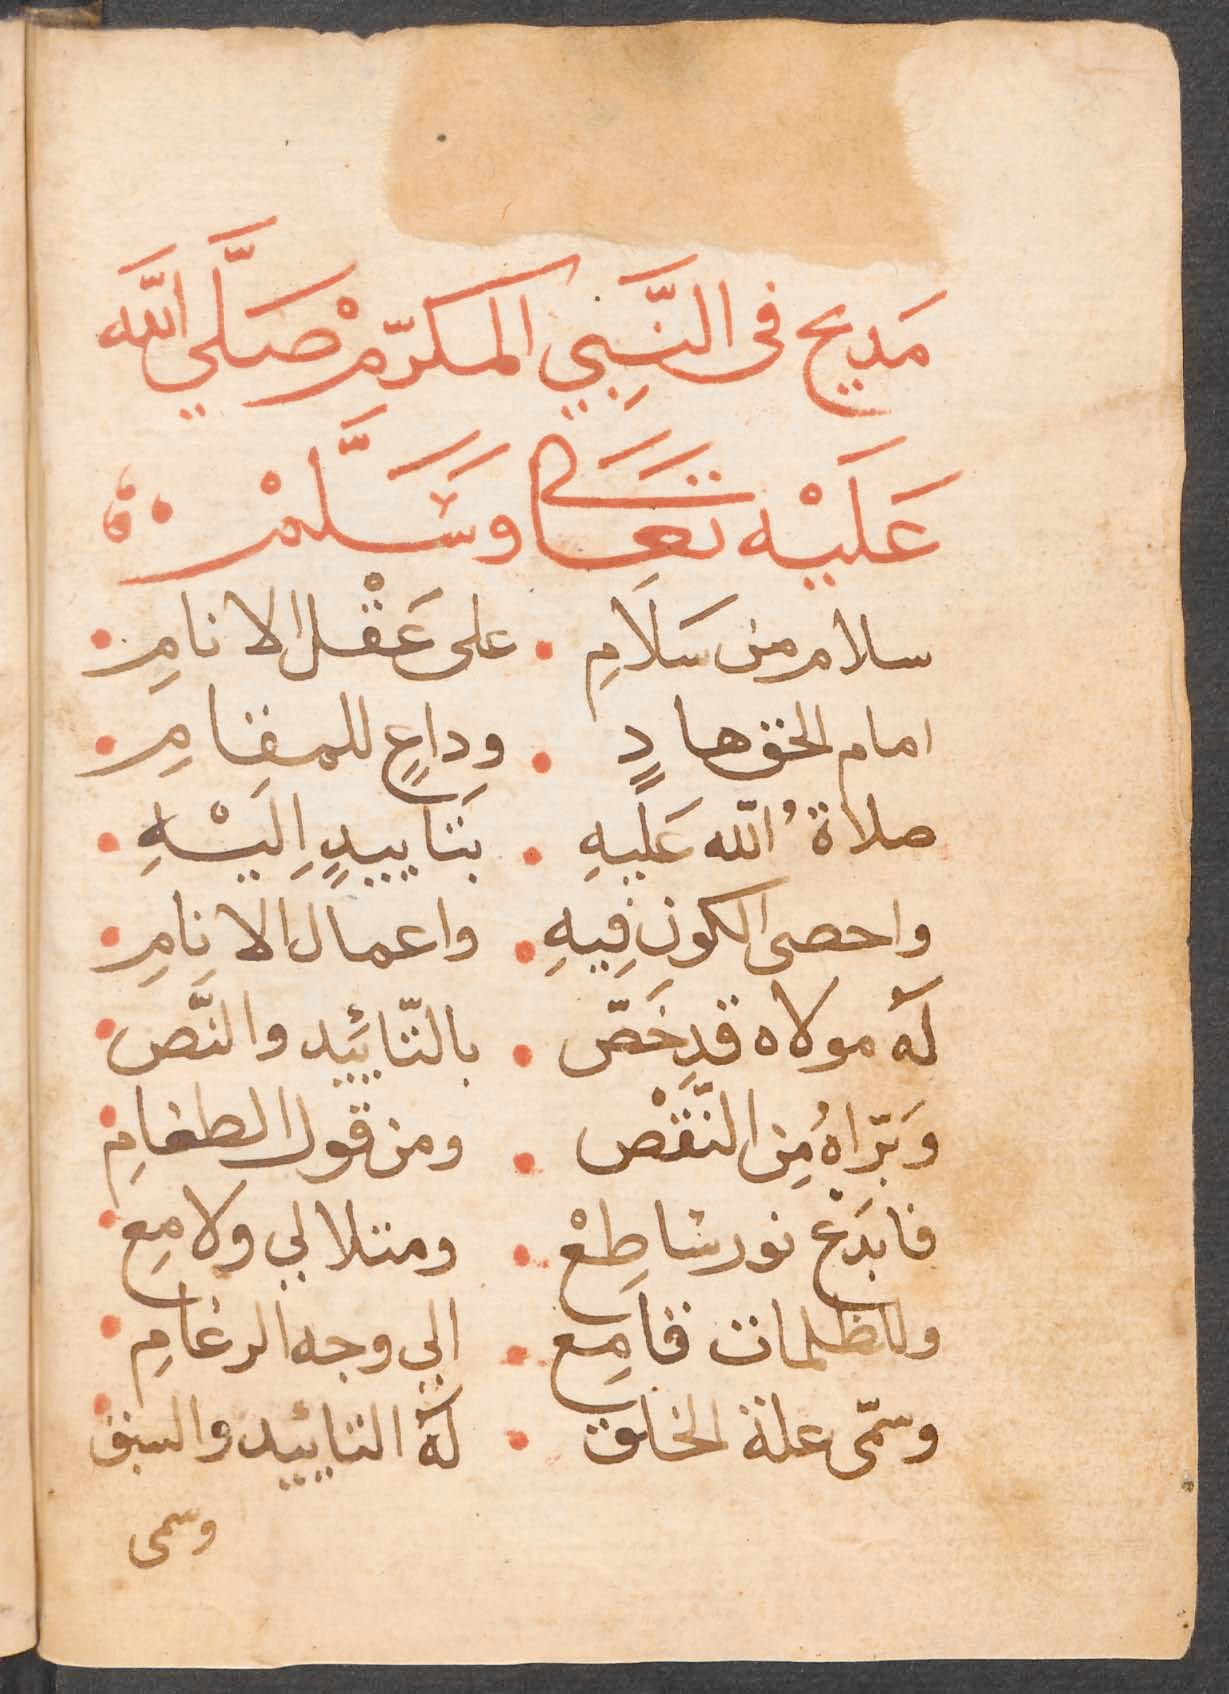 مَديح فى النَّبِي المكرّمْ صَلَّي اللَّه
عَلَيْه تعَالَى وَسَلَّمْ
سلام من سَلَامِ • على عَقْل الانامِ •
امام الحق هادٍ • وداعٍ للمقامِ •
صلاةُ اللّه عَليهِ • بتاييدٍ اِليْهِ •
واحصى الكون فِيهِ • واعمال الانامِ •
لَهُ مولاه قد خَصّ • بالتّائيد والنَّص •
وَبَرّاهُ مِن النَّقْص • ومن قول الطغامِ •
فابدَع نور ساطِعْ • ومتلالي ولامِع •
وللظلمات قامِع • الي وجه الرغامِ •
وسمّى علة الخلق • لَهُ التائيد والسبق •
وسمى